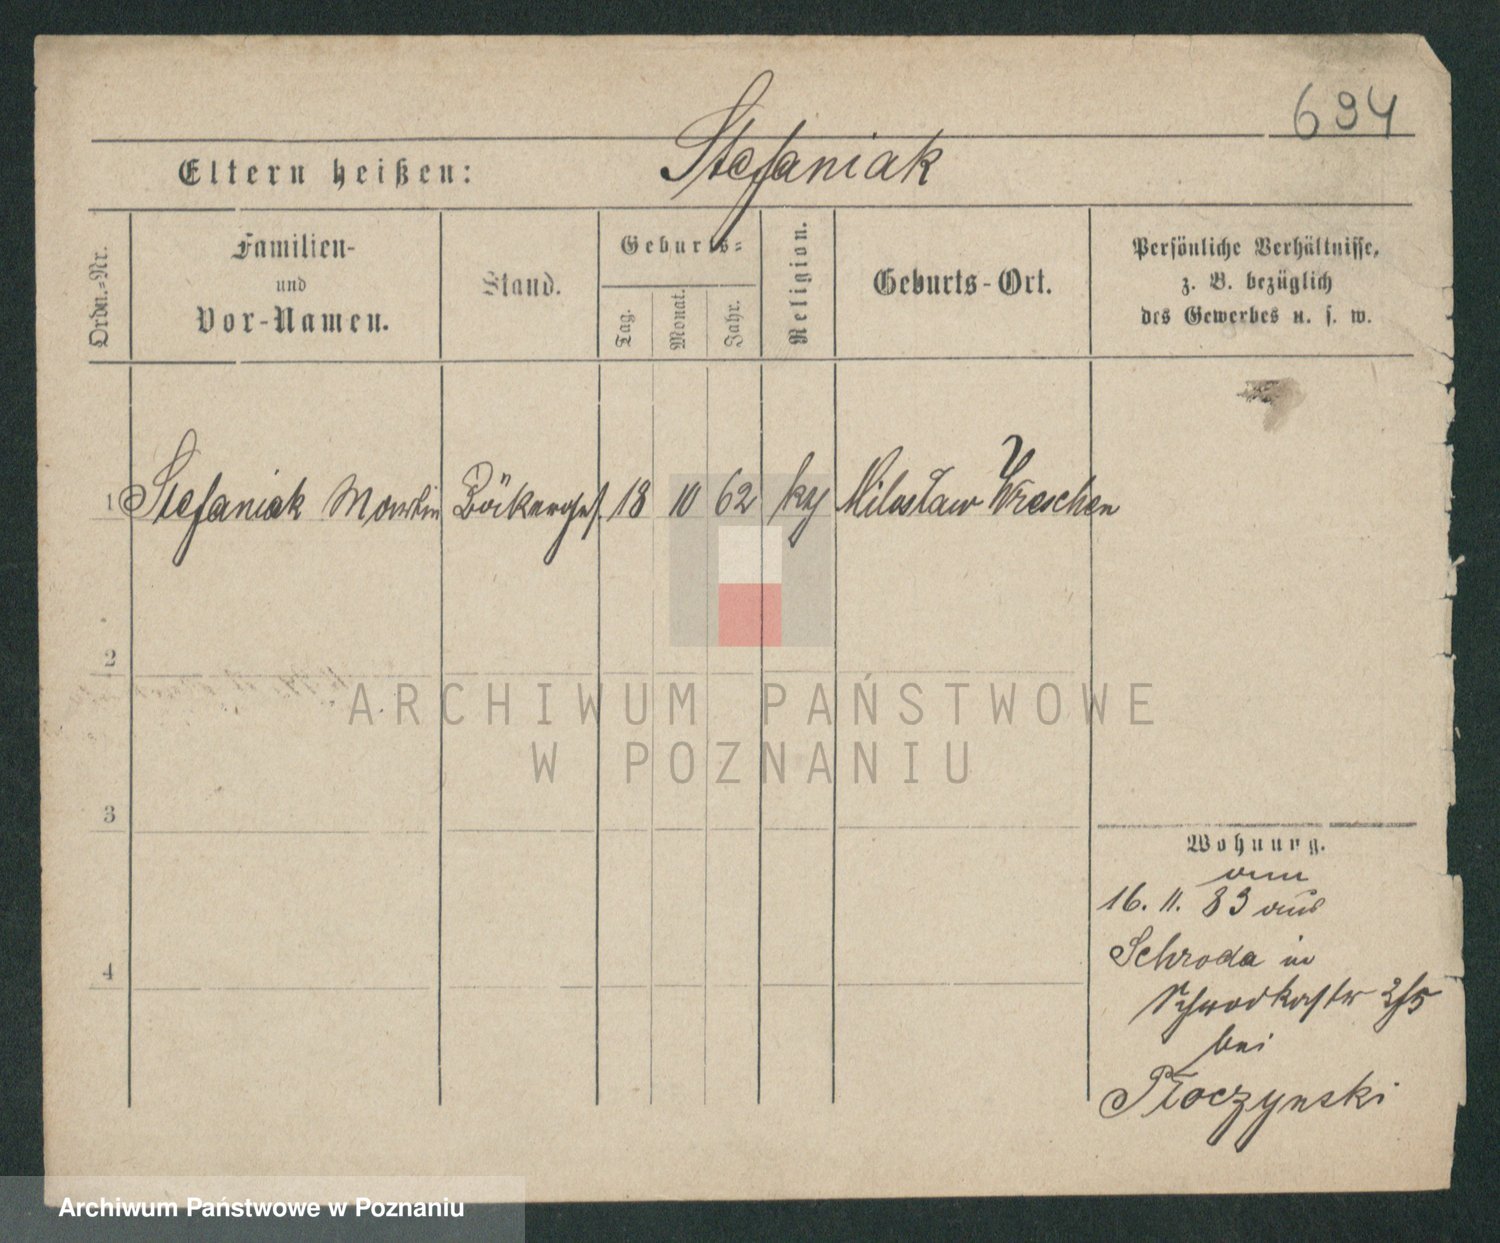 694
Eltern heißen: Stefaniak
Ordn.-Nr.
Familien-
und
Vor-Namen.
Stand.
Geburts-
Tag.
Monat.
Jahr.
Religion.
Geburts-Ort.
Persönliche Verhältnisse,
z. B. bezüglich
des Gewerbes u. s. w.
1 Stefaniak Martin Bäckerges. 18 10 62 Miłosław Wreschen
2
3
4
Wohnung.
vom
16. 11. 83 aus
Schroda in
Schrodkastr 2/5
bei
Płoczynski
ARCHIWUM PAŃSTWOWE
W POZNANIU
Archiwum Państwowe w Poznaniu